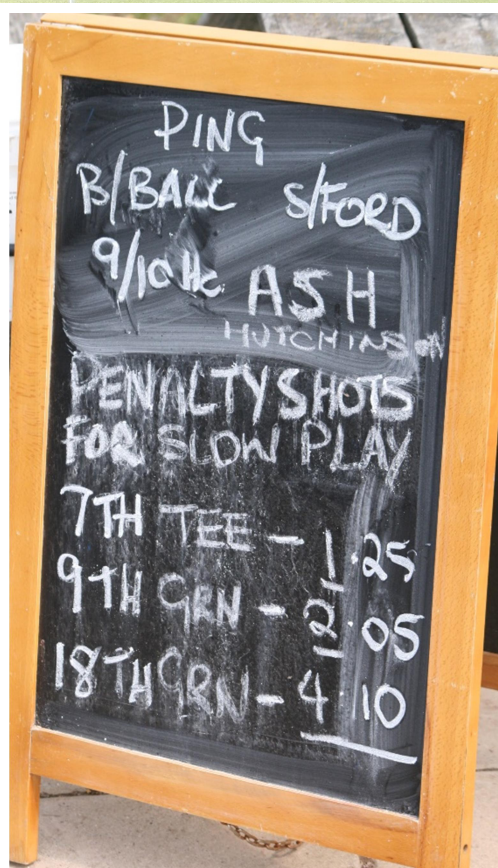 PING
B/BALL S/FORD
9/10 Hc ASH
HUTCHINSON
PENALTY SHOTS
FOR SLOW PLAY
7TH TEE - 1.25
9TH GRN - 2.05
18TH GRN - 4.10